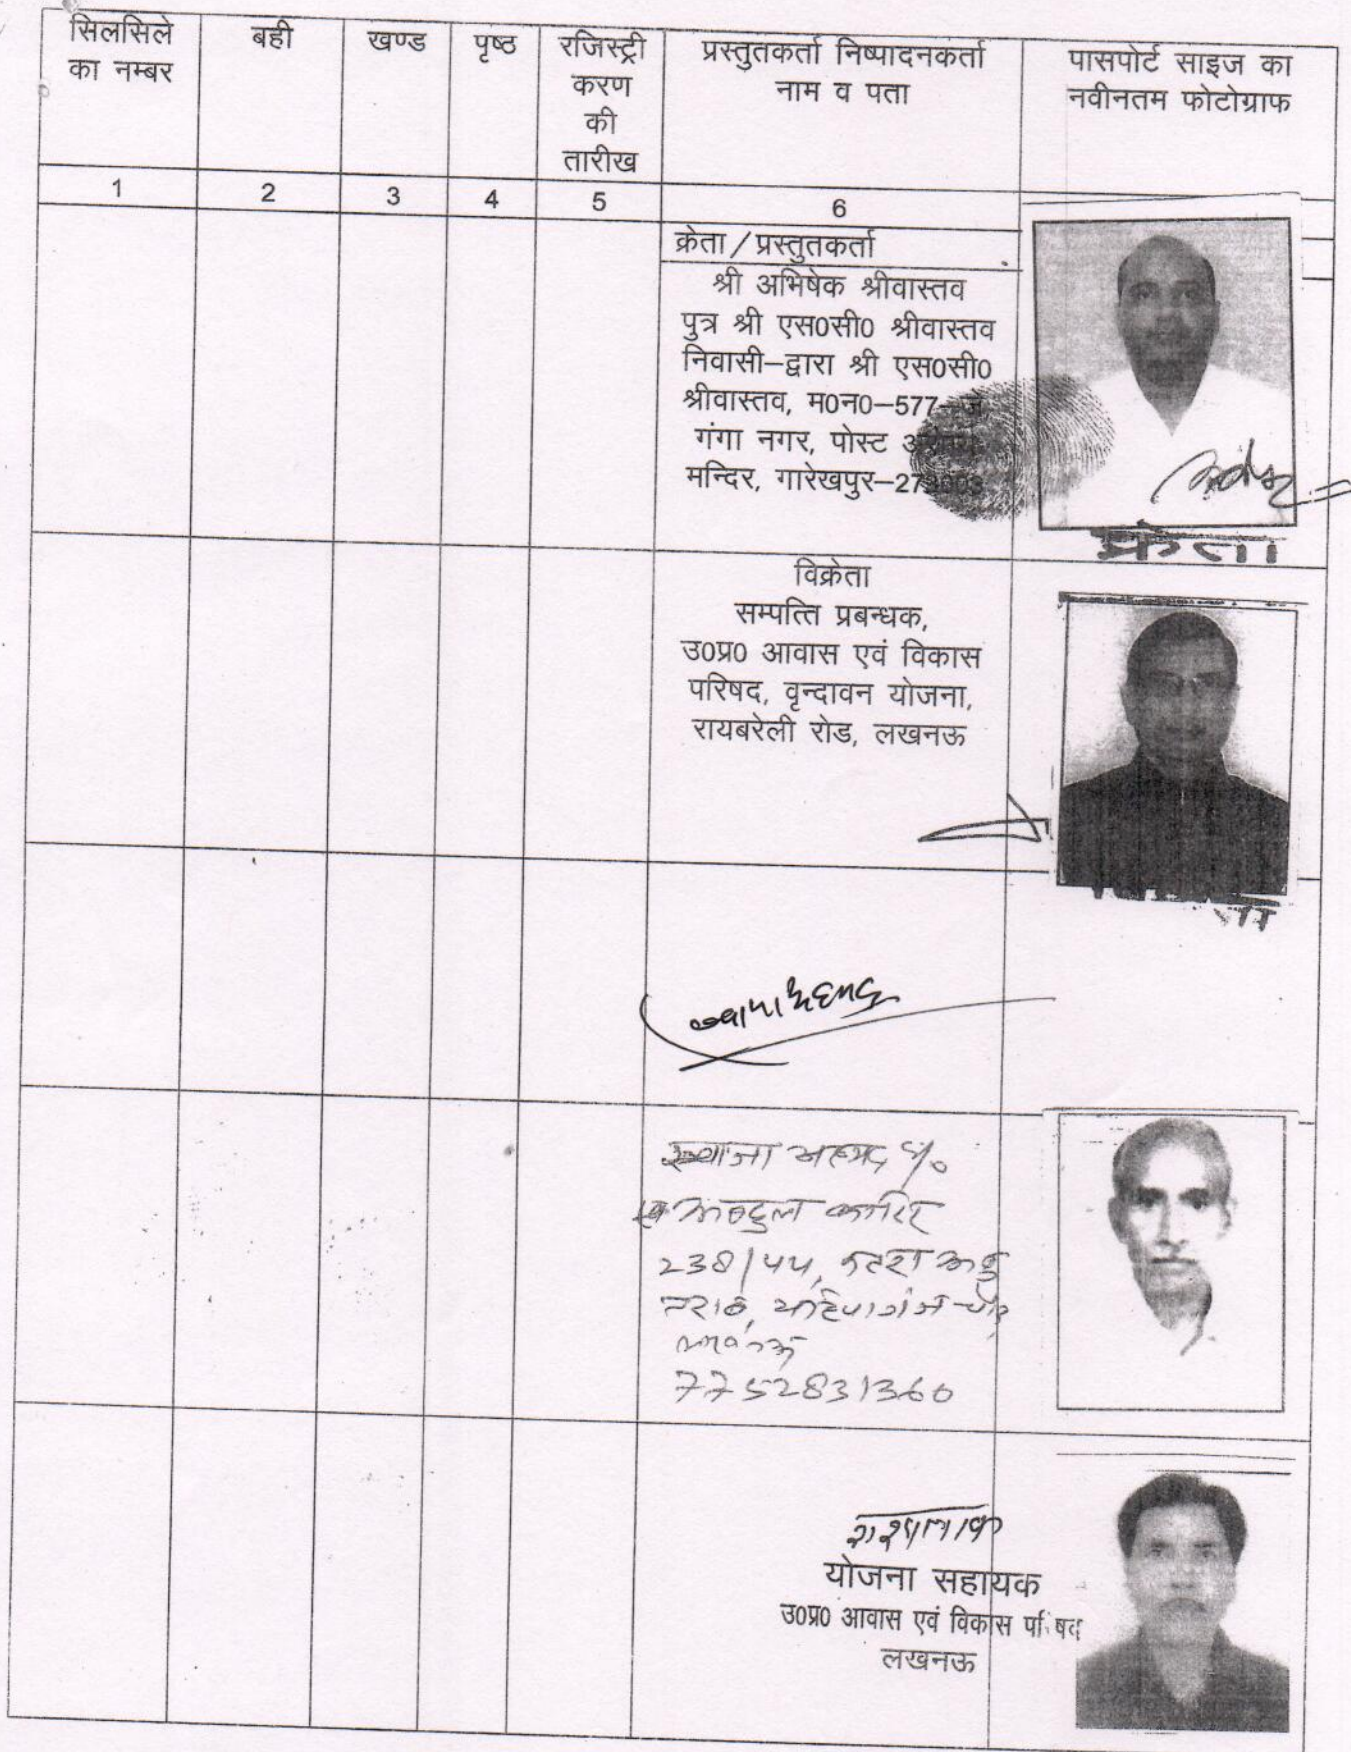 सिलसिले का नम्बर
बही
खण्ड
पृष्ठ
रजिस्ट्री करण की तारीख
प्रस्तुतकर्ता निष्पादनकर्ता नाम व पता
पासपोर्ट साइज का नवीनतम फोटोग्राफ
1 2 3 4 5 6
क्रेता/प्रस्तुतकर्ता
श्री अभिषेक श्रीवास्तव
पुत्र श्री एस0सी0 श्रीवास्तव
निवासी–द्वारा श्री एस0सी0
श्रीवास्तव, म0न0–577–
गंगा नगर, पोस्ट
मन्दिर, गारेखपुर–273003
क्रेता
विक्रेता
सम्पत्ति प्रबन्धक,
उ0प्र0 आवास एवं विकास
परिषद, वृन्दावन योजना,
रायबरेली रोड, लखनऊ
ख्वाजा अहमद
अब्दुल
238/44, कटरा
7752831360
योजना सहायक
उ0प्र0 आवास एवं विकास परिषद
लखनऊ